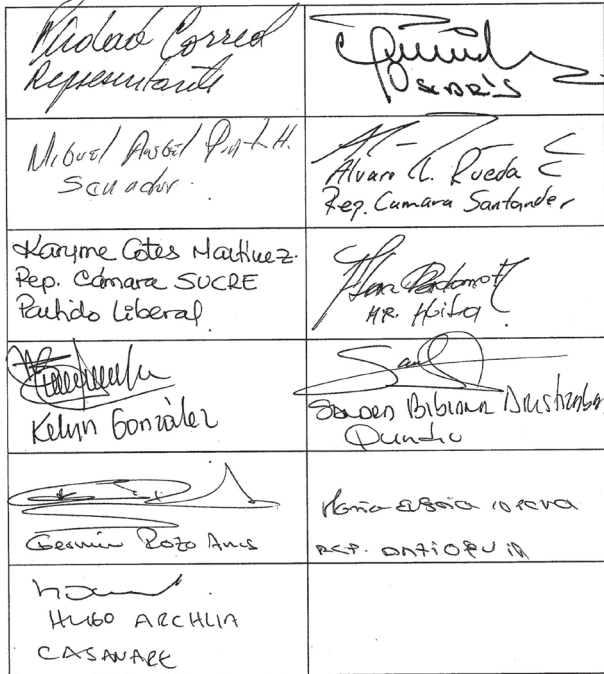 Piedad Correal
Representante
Miguel Angel Pinto H.
Senador.
Alvaro L. Rueda C
Rep. Camara Santander
Karyme Cotes Martinez.
Rep. Cámara SUCRE
Partido Liberal
Flora Perdomo
HR. Huila
Kelyn González
Sandra Bibiana Aristizabal
Quindio
German Rozo Anis
Maria Eugenia Lopera
REP. ANTIOQUIA
HUGO ARCHILA
CASANARE